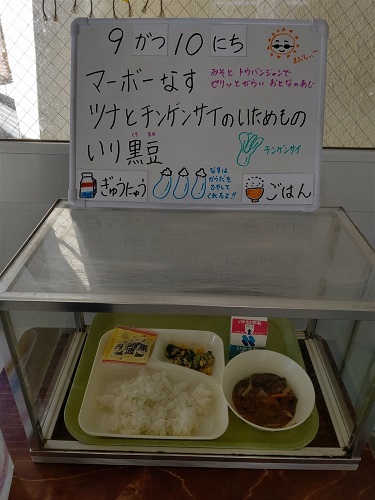 9 がつ 10 にち
まぶしぃー
マーボーなす
みそと トウバンジャンで
ピリッとからい おとなのあじ
ツナとチンゲンサイのいためもの
いり黒豆
くろ まめ
チンゲンサイ
ぎゅうにゅう
なすは
からだを
ひやして
くれるよ!!
ごはん